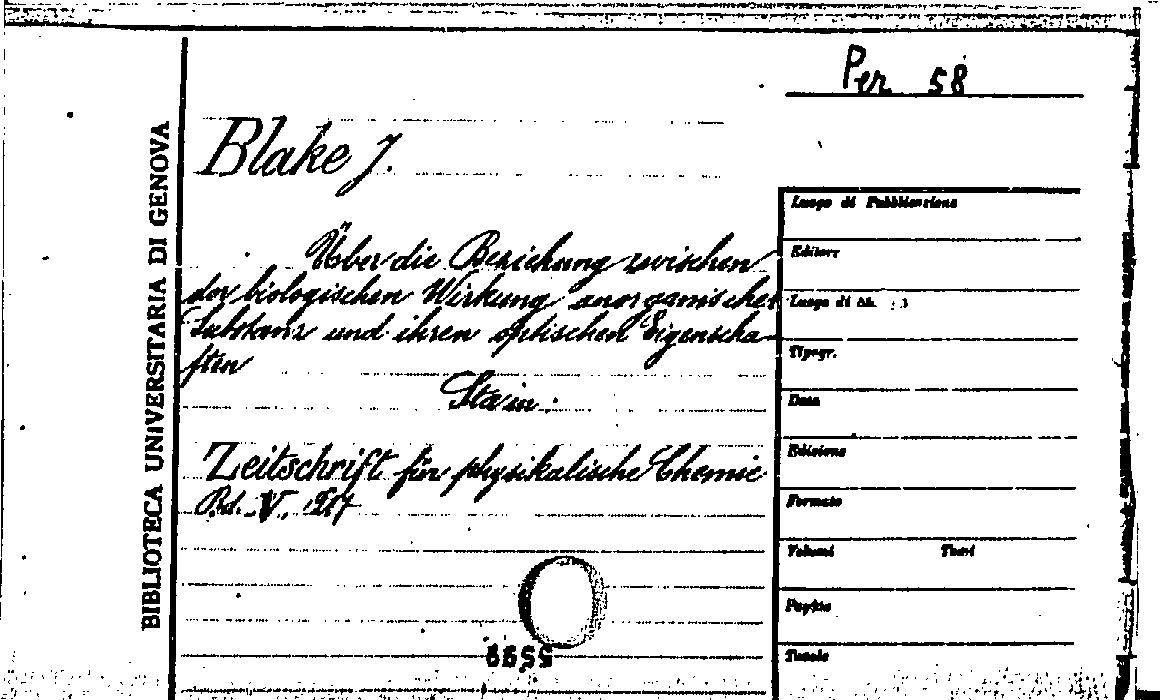 Per 58
BIBLIOTECA UNIVERSITARIA DI GENOVA
Blake J.
Über die Beziehung zwischen
der biologischen Wirkung anorganischer
Substanz und ihren optischen Eigenscha-
ften
Zeitschrift für physikalische Chemie
Bd. V.
Luogo di Pubblicazione
Editore
Luogo di St.
Tipogr.
Data
Edizione
Formato
Volumi Tomi
Pagine
Tavole